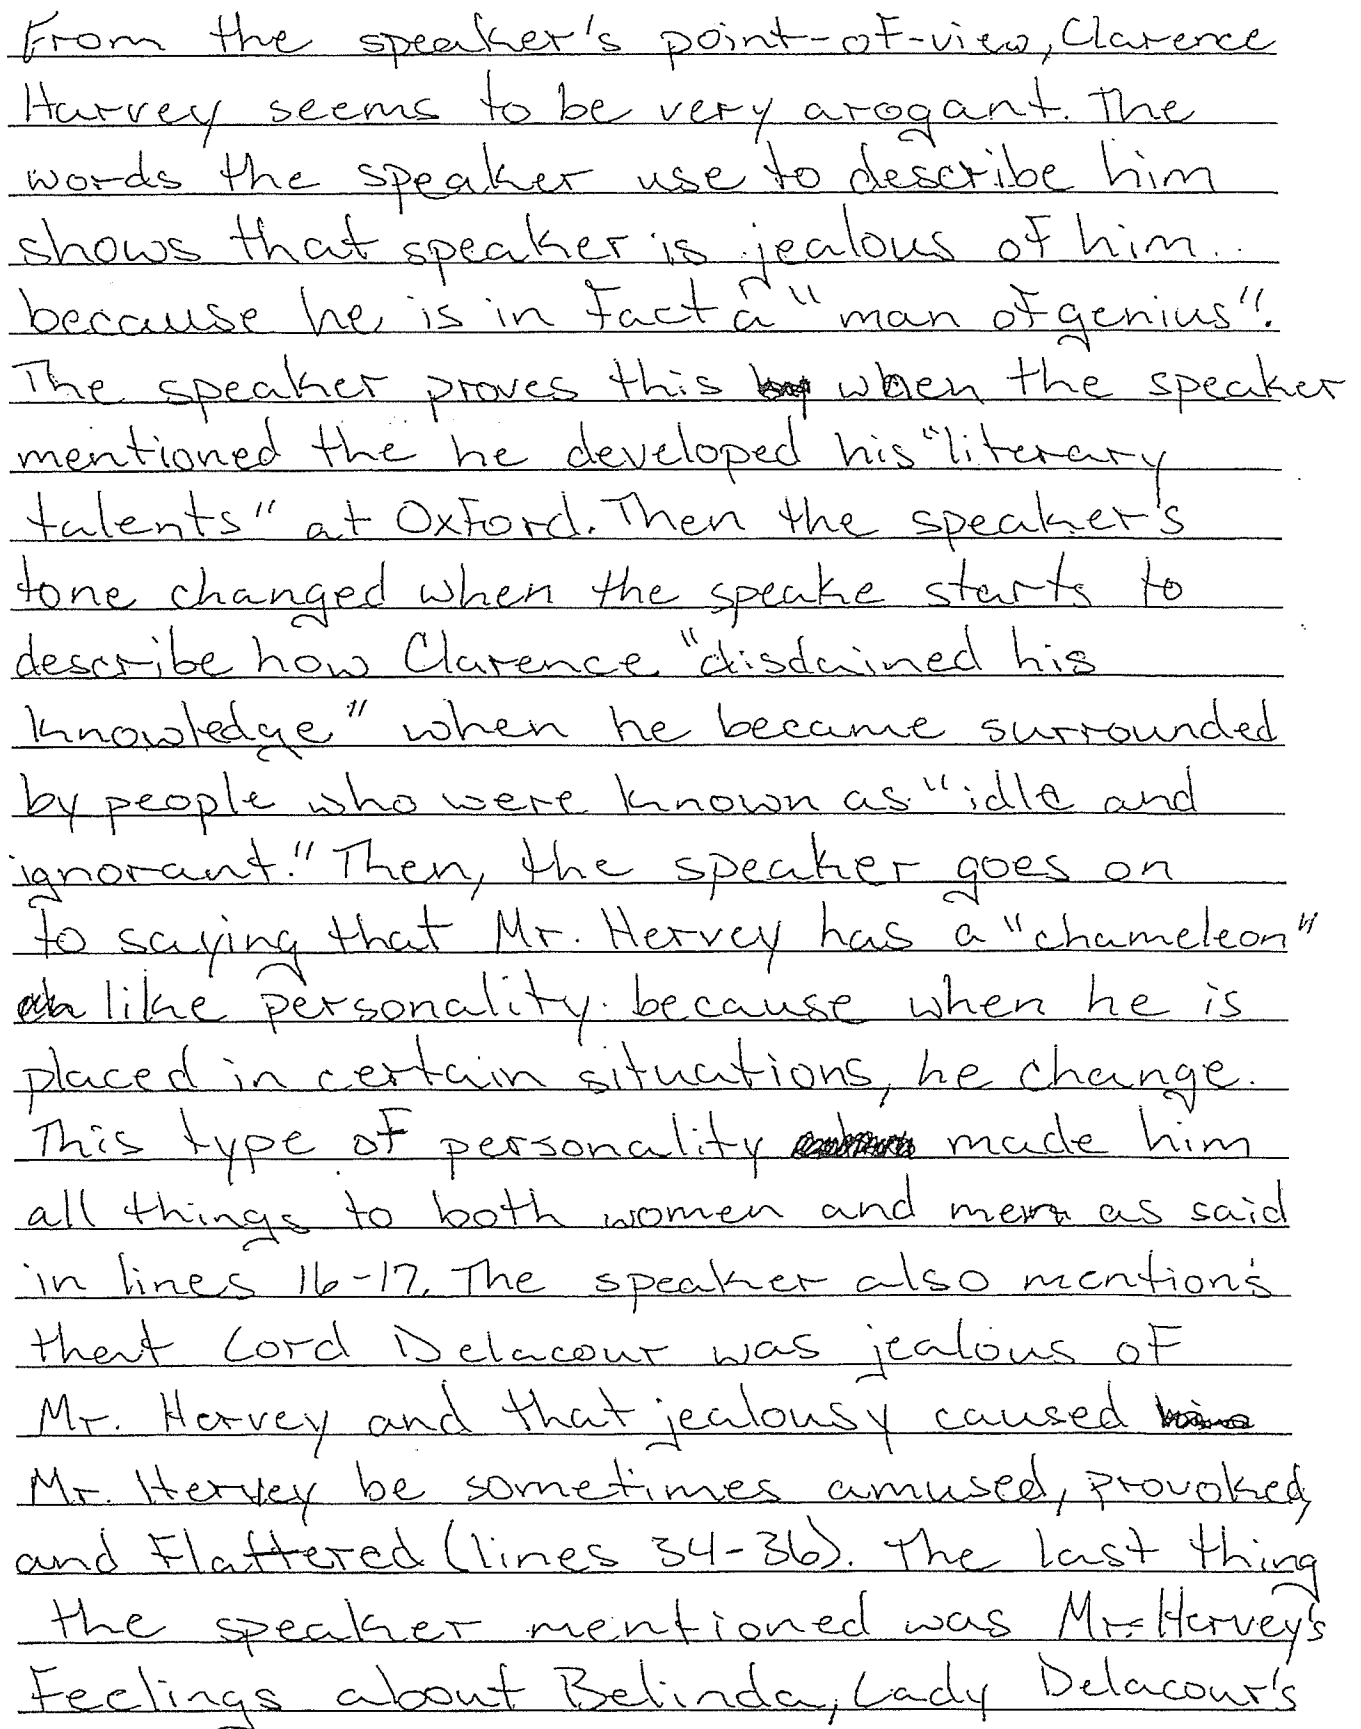 From the speaker's point-of-view, Clarence
Harvey seems to be very arogant. The
words the speaker use to describe him
shows that speaker is jealous of him
because he is in fact a "man of genius".
The speaker proves this when the speaker
mentioned the he developed his "literary
talents" at Oxford. Then the speaker's
tone changed when the speake starts to
describe how Clarence "disdained his
knowledge" when he became surrounded
by people who were known as "idle and
ignorant." Then, the speaker goes on
to saying that Mr. Hervey has a "chameleon"
like personality because when he is
placed in certain situations, he change.
This type of personality made him
all things to both women and men as said
in lines 16-17. The speaker also mentions
that Lord Delacour was jealous of
Mr. Hervey and that jealousy caused
Mr. Hervey be sometimes amused, provoked,
and flattered (lines 34-36). The last thing
the speaker mentioned was Mr. Hervey's
feelings about Belinda, Lady Delacour's